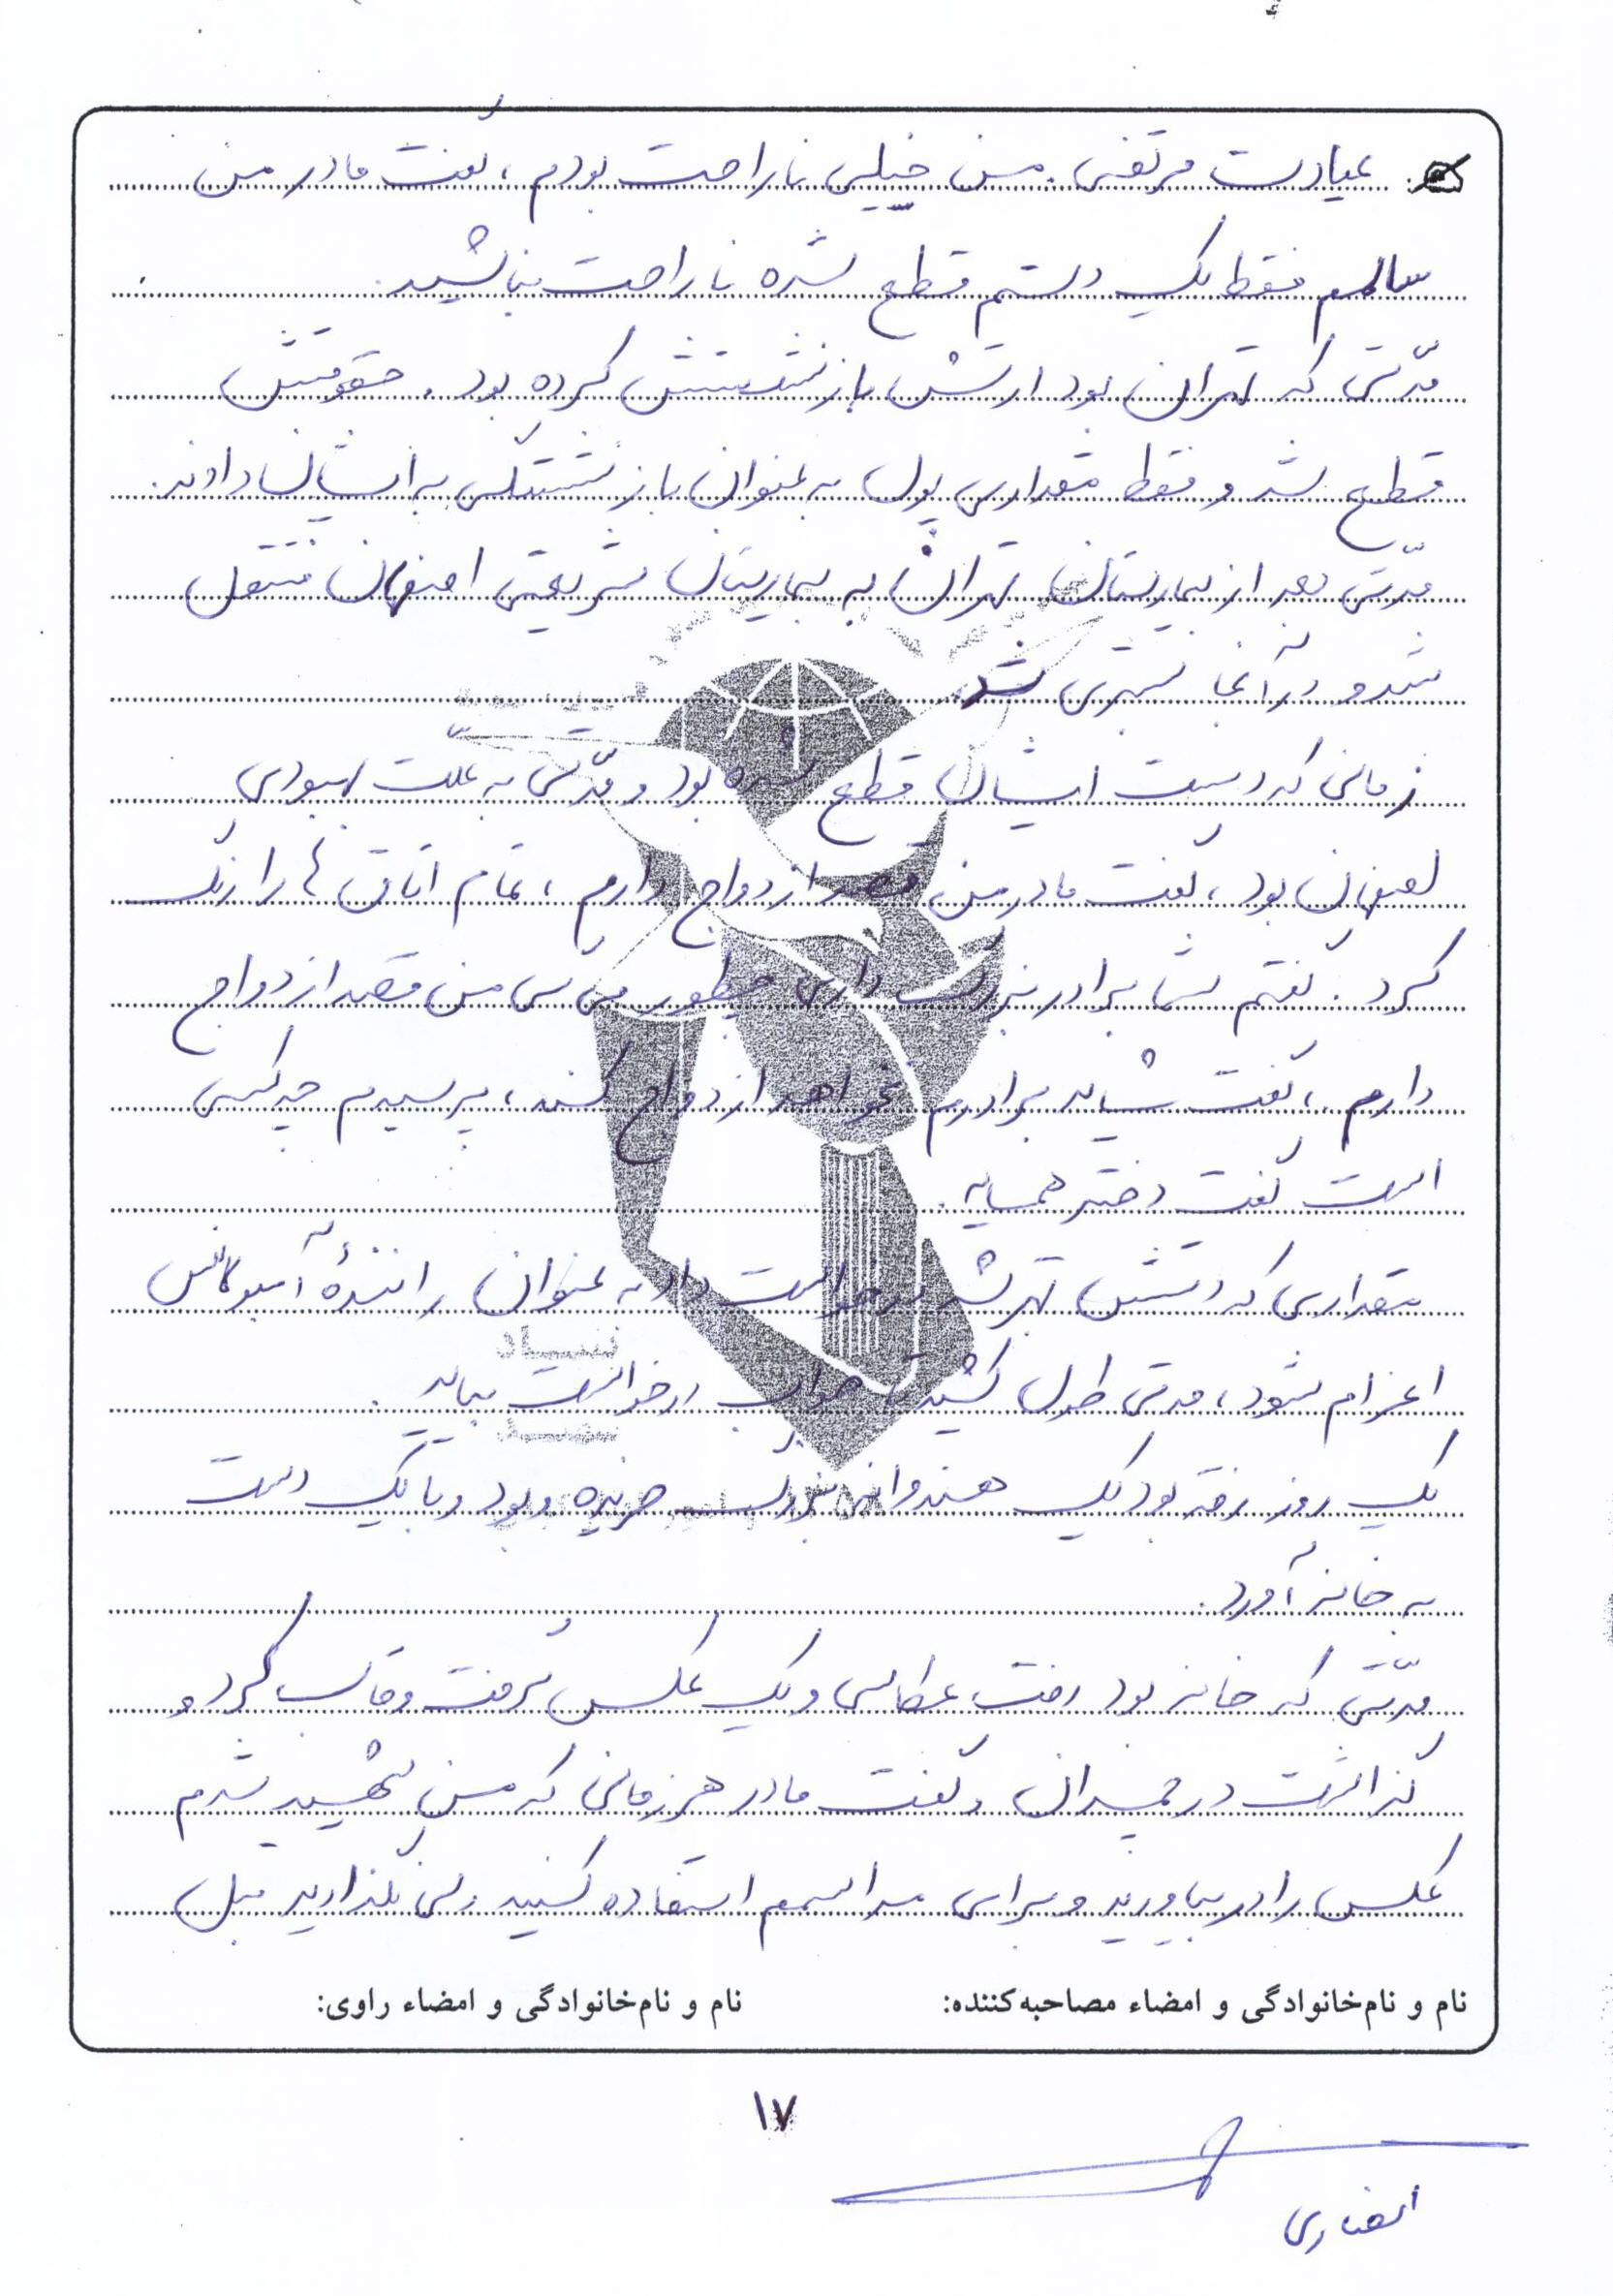 عیادت مرتضی. من خیلی ناراحت بودم، گفت مادر من
سالمم فقط یک دستم قطع شده ناراحت نباشید.
مدّتی که تهران بود ارتش بازنشستش کرده بود. حقوقش
قطع شد و فقط مقداری پول به عنوان بازنشستگی به ایشان دادند.
مدّتی بعد از بیمارستان تهران به بیمارستان شریعتی اصفهان منتقل
شد و در آنجا بستری شد
زمانی که دست ایشان قطع شده بود و مدّتی به علت بهبودی
اصفهان بود، گفت مادر من قصد ازدواج دارم، تمام اتاق ها را رنگ
کرد. گفتم شما برادر بزرگ داری چطور می سی من قصد ازدواج
دارم، گفت شاید برادرم نخواهد ازدواج کند، پرسیدم چه کسی
است گفت دختر همسایه.
مقداری که دستش بهتر شد درخواست داد به عنوان رانندهٔ آمبولانس
اعزام شود، مدتی طول کشید تا جواب درخواست بیاید.
یک روز رفته بود یک هندوانه بزرگ خریده بود و با یک دست
به خانه آورد.
مدّتی که خانه بود رفت عکاسی و یک عکس گرفت و قاب کرد و
گذاشت در چمدان و گفت مادر هر زمانی که من شهید شدم
عکس را در بیاورید و برای مراسمم استفاده کنید ولی نگذارید قبل
نام و نام‌خانوادگی و امضاء مصاحبه‌کننده: نام و نام‌خانوادگی و امضاء راوی:
۱۷
انصاری